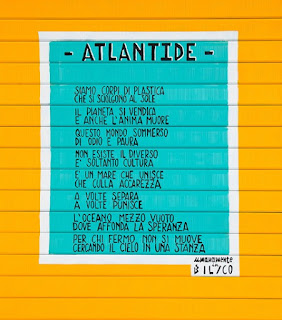 - ATLANTIDE -
SIAMO CORPI DI PLASTICA
CHE SI SCIOLGONO AL SOLE
IL PIANETA SI VENDICA
E ANCHE L'ANIMA MUORE
QUESTO MONDO SOMMERSO
DI ODIO E PAURA
NON ESISTE IL DIVERSO
E' SOLTANTO CULTURA
E' UN MARE CHE UNISCE
CHE CULLA ACCAREZZA
A VOLTE SEPARA
A VOLTE PUNISCE
L'OCEANO MEZZO VUOTO
DOVE AFFONDA LA SPERANZA
PER CHI FERMO NON SI MUOVE
CERCANDO IL CIELO IN UNA STANZA